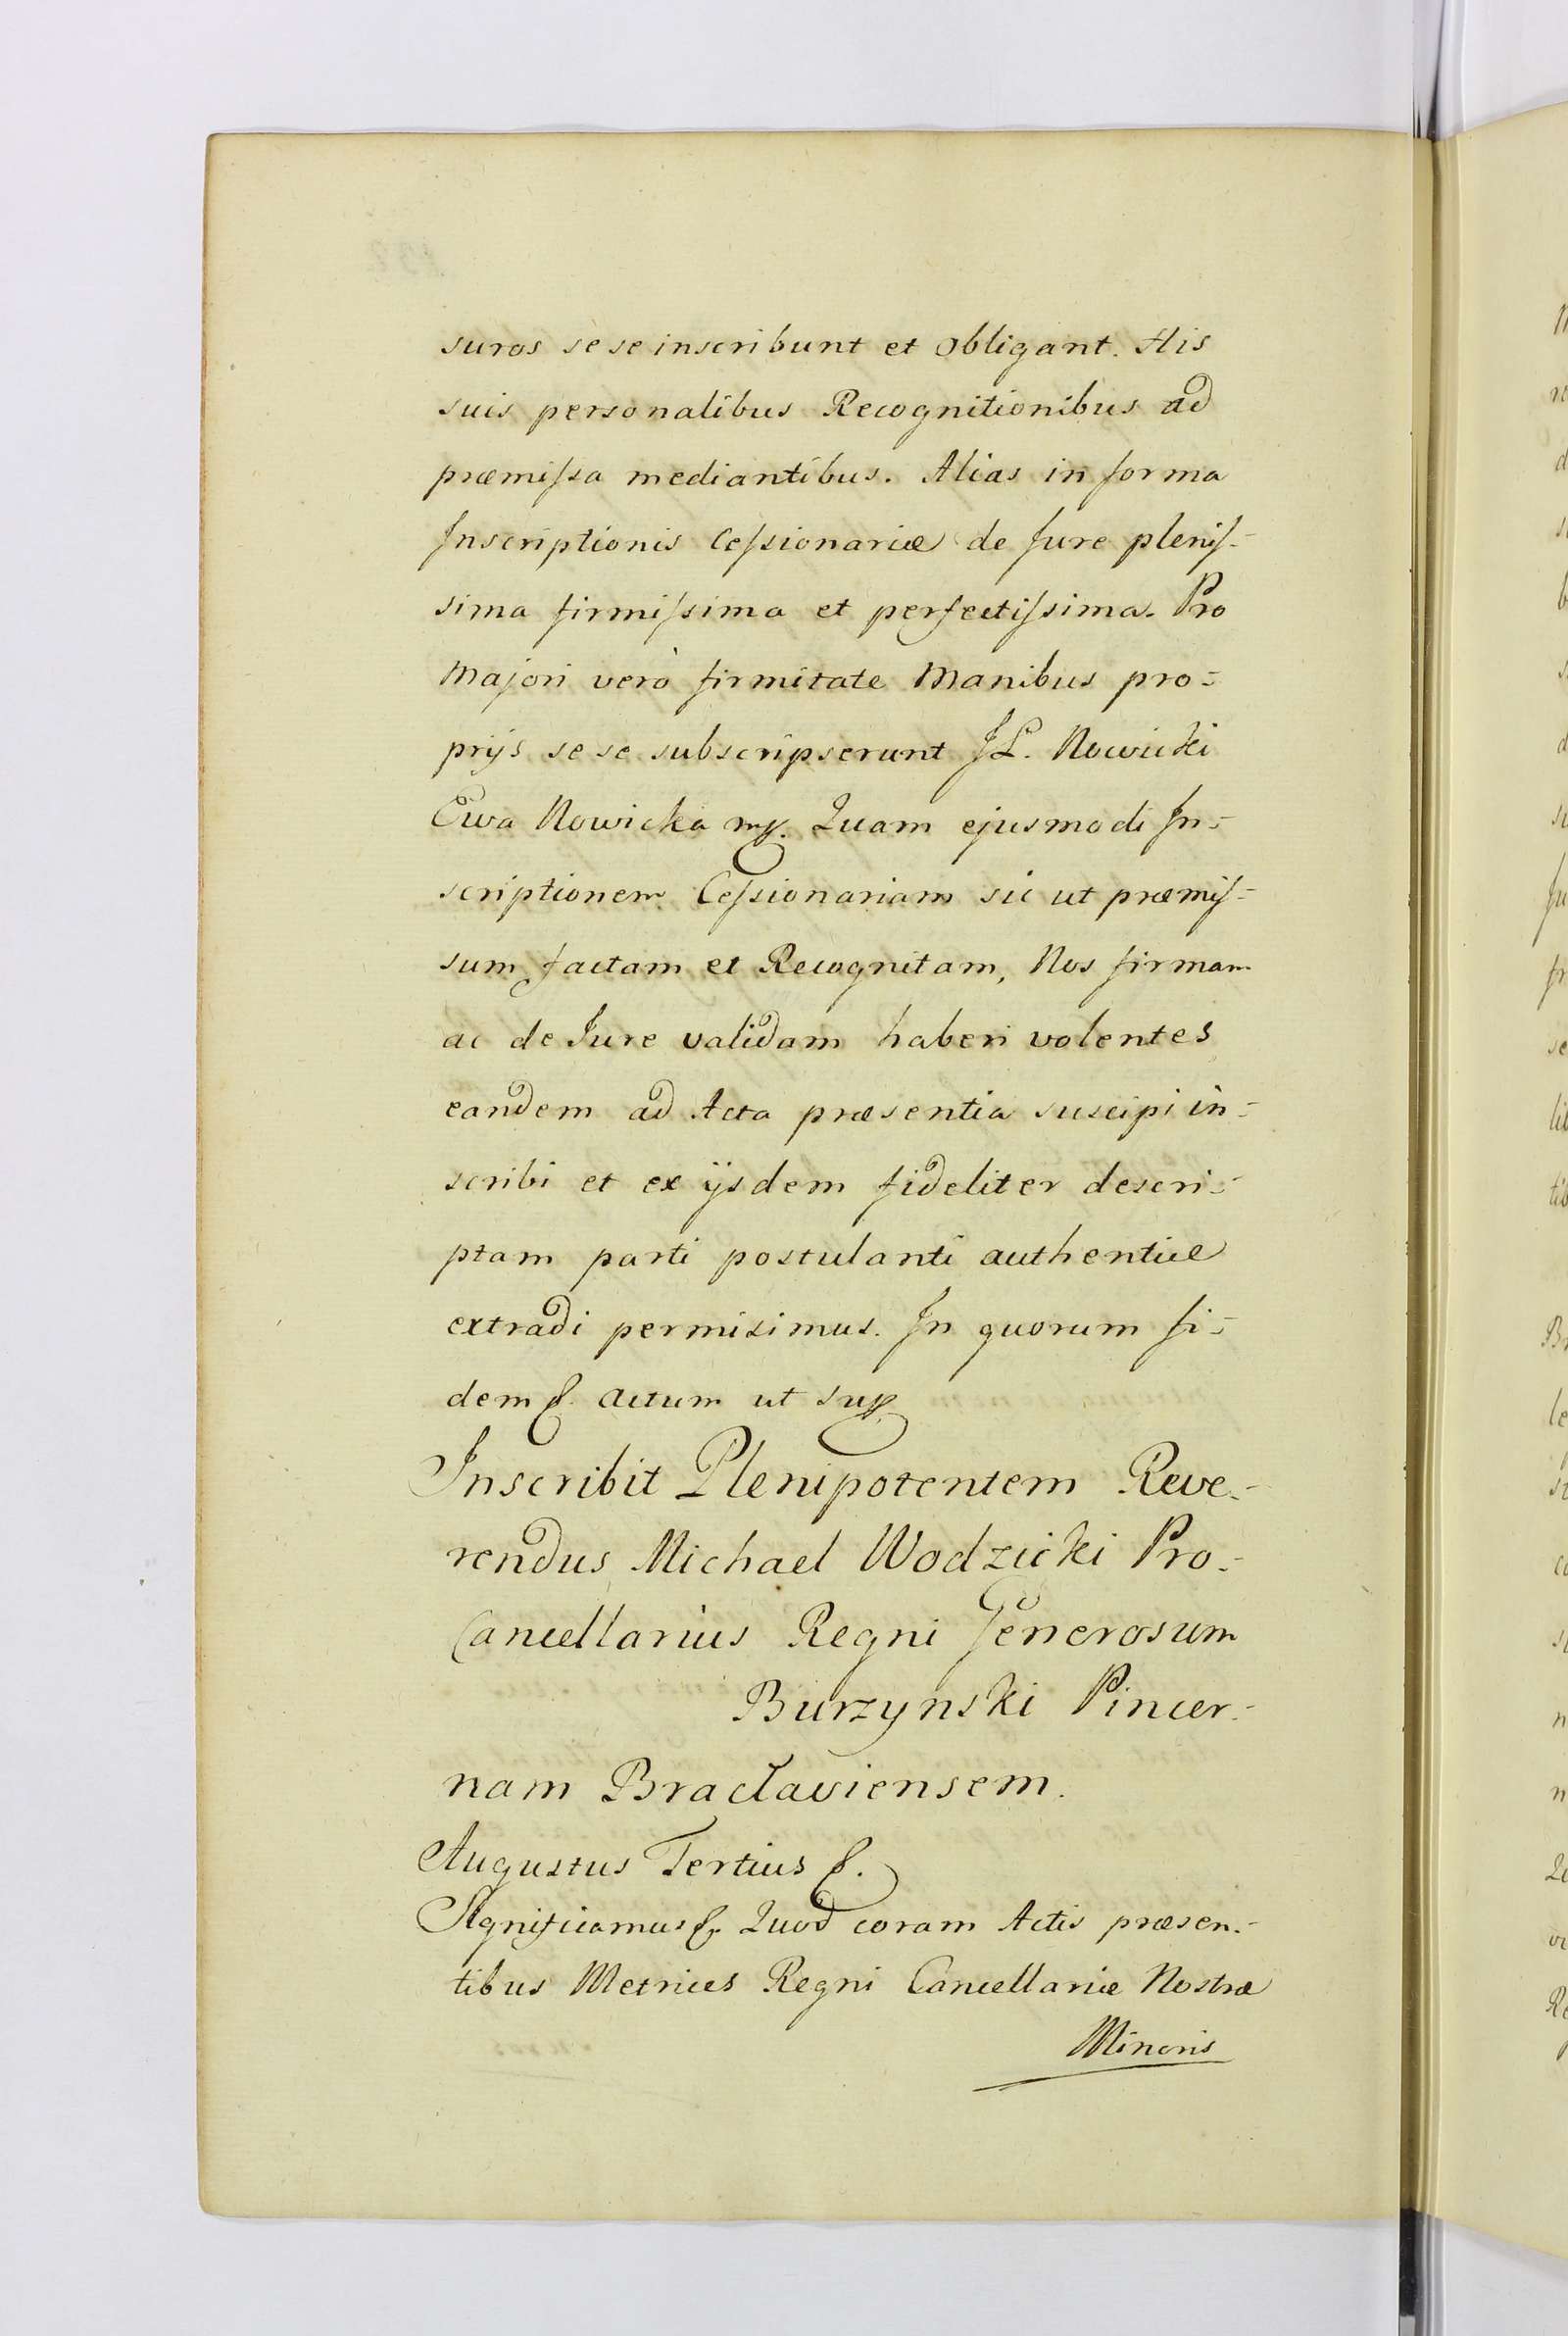 suros sese inscribunt et obligant. His
suis personalibus Recognitionibus ad
præmissa mediantibus. Alias in forma
Inscriptionis Cessionariæ de Jure plenis-
sima firmissima et perfectissima. Pro
Majori verò firmitate Manibus pro-
prijs sese subscripserunt JP. Nowicki
Ewa Nowicka mp. Quam ejusmodi In-
scriptionem Cessionariam sic ut præmis-
sum factam et Recognitam, Nos firmam
ac de Jure validam haberi volentes
eandem ad Acta præsentia suscipi in-
scribi et ex ijsdem fideliter descri-
ptam parti postulanti authentice
extradi permisimus. In quorum fi-
dem &. Actum ut supp
Inscribit Plenipotentem Reve-
rendus Michael Wodzicki Pro-
Cancellarius Regni Generosum
Burzynski Pincer-
nam Braclaviensem.
Augustus Tertius &.
Significamus &. Quod coram Actis præsen-
tibus Metrices Regni Cancellariæ Nostræ
Minoris